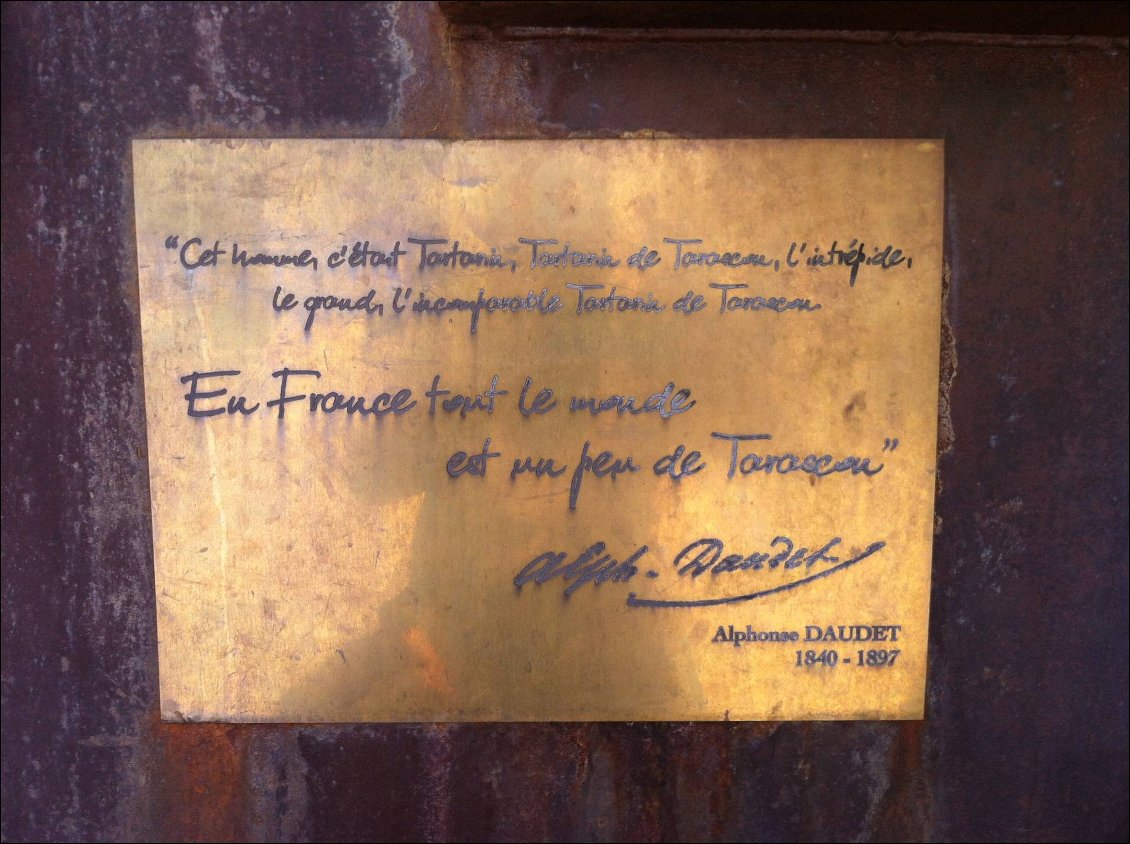 “Cet homme, c'était Tartarin, Tartarin de Tarascon, l'intrépide,
le grand, l'incomparable Tartarin de Tarascon.
En France tout le monde
est un peu de Tarascon”
Alph. Daudet
Alphonse DAUDET
1840 - 1897